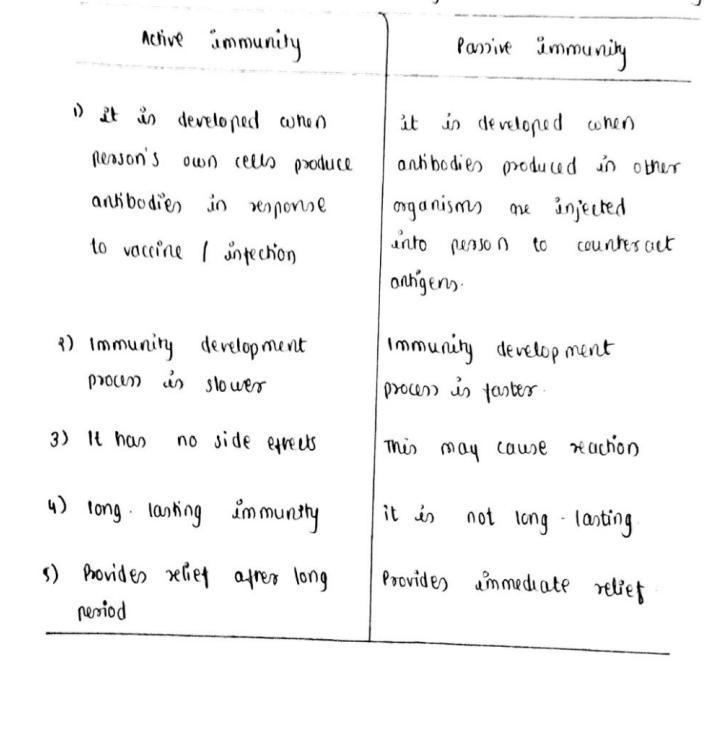 Active immunity
Passive immunity
1) it is developed when
person's own cells produce
antibodies in response
to vaccine / infection
it is developed when
antibodies produced in other
organisms are injected
into person to counteract
antigens.
2) Immunity development
process is slower
Immunity development
process is faster.
3) It has no side effects
This may cause reaction
4) long-lasting immunity
it is not long-lasting
5) Provides relief after long
period
Provides immediate relief.